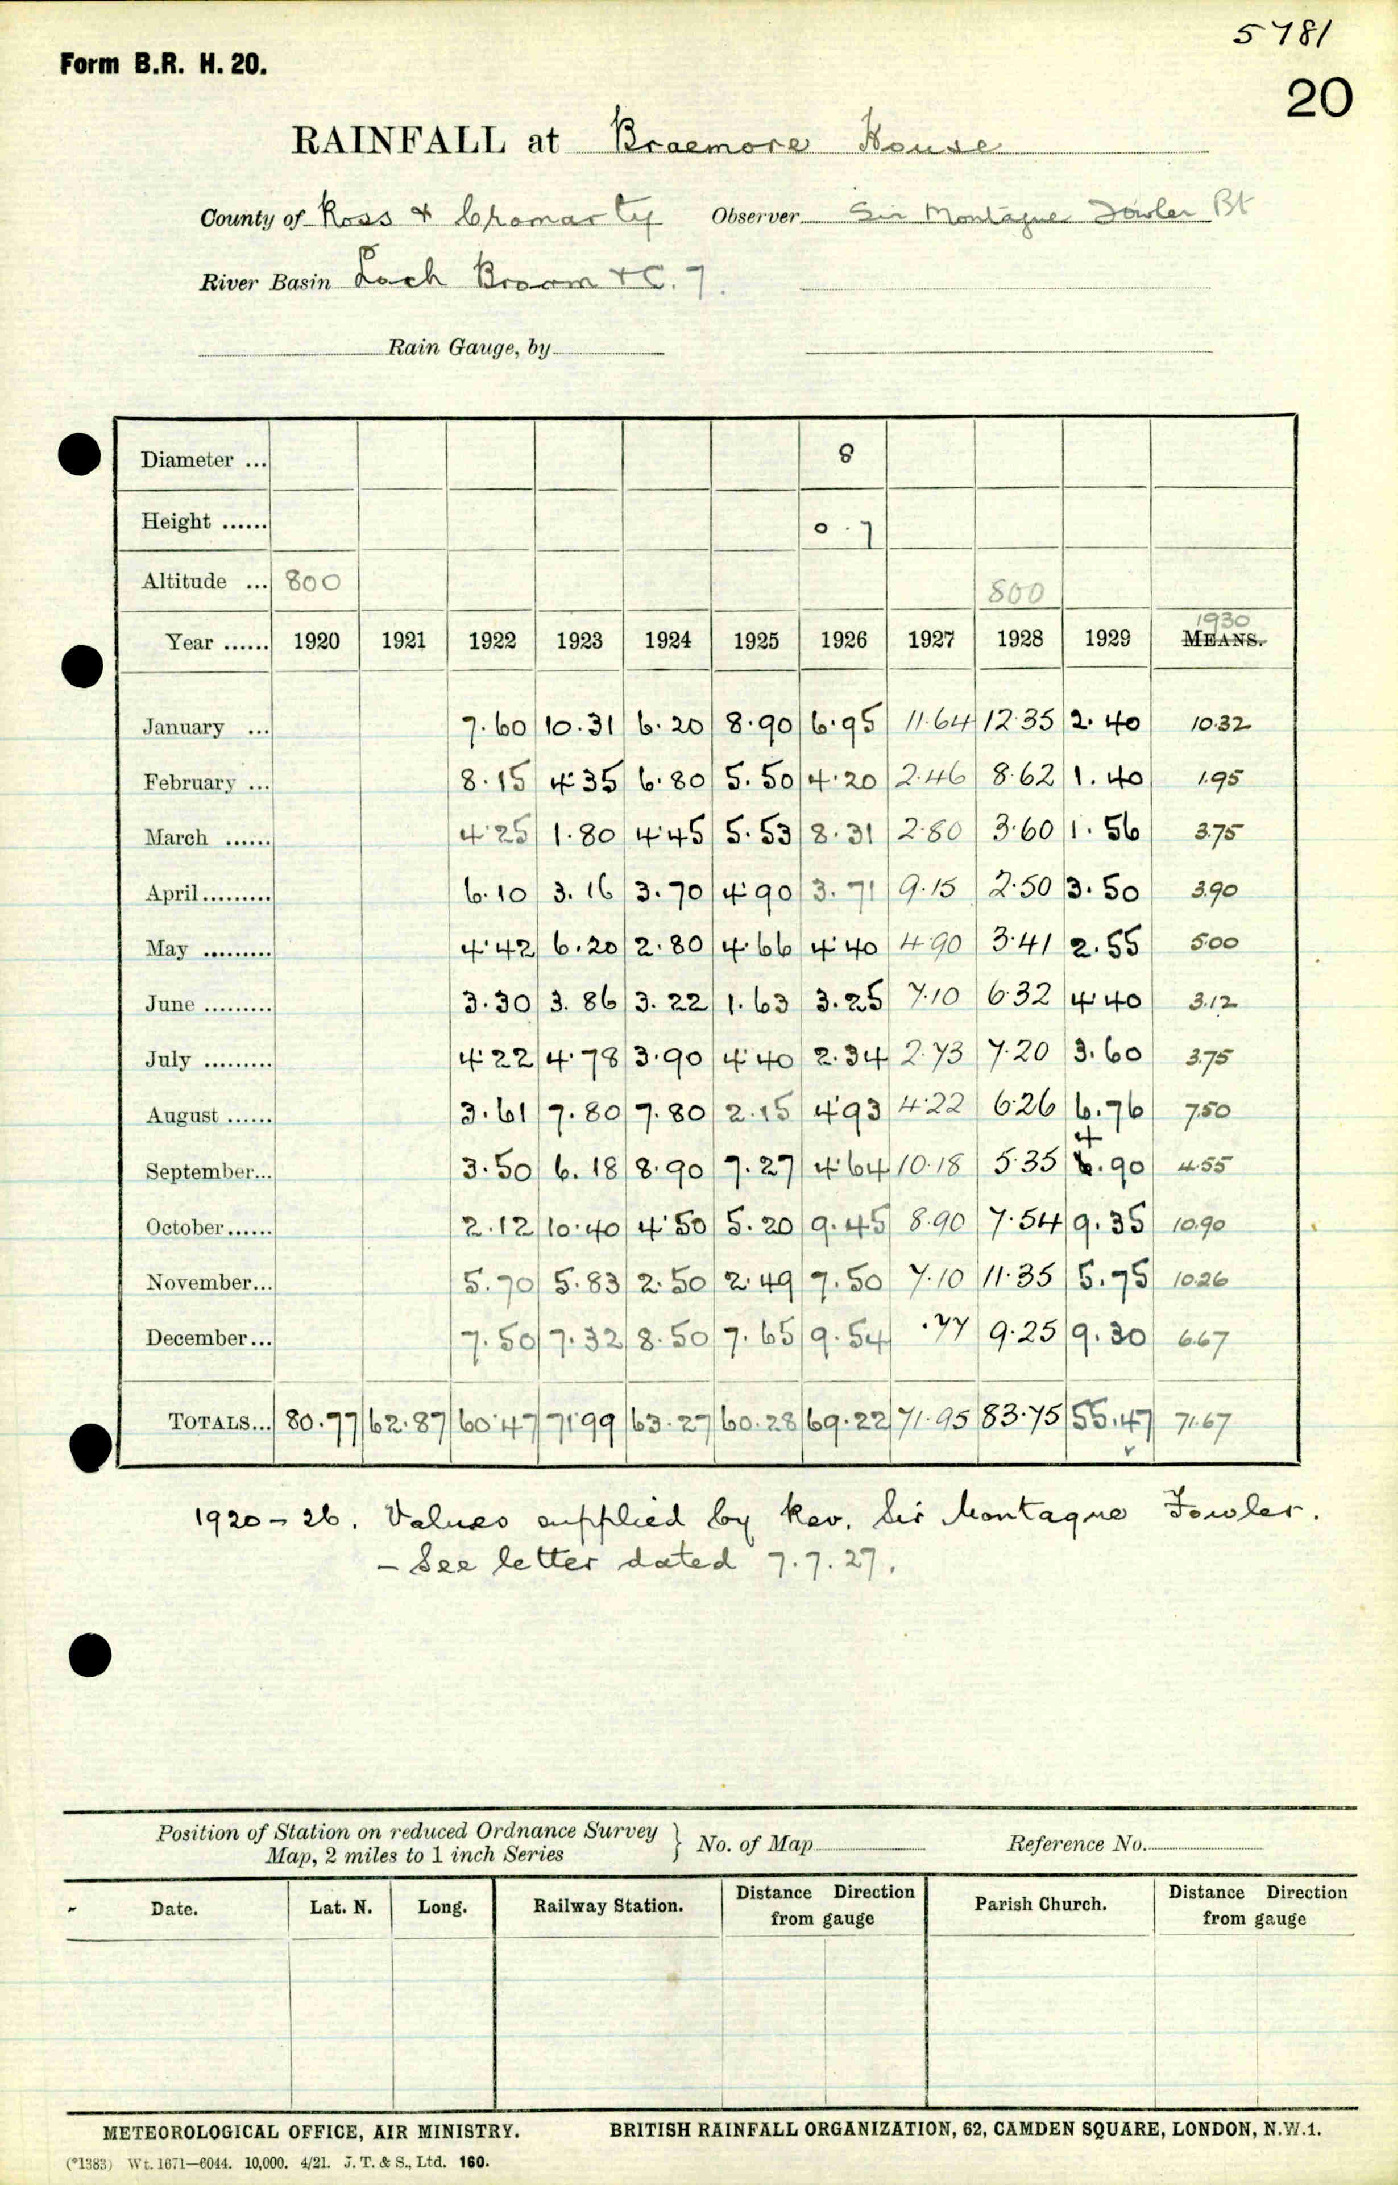 5781
Form B.R. H. 20.
20
RAINFALL at Braemore House
County of Ross & Cromarty Observer Sir Montague Fowler Bt
River Basin Loch Broom & C. 7.
Rain Gauge, by
Diameter ... 8
Height ...... 0 . 7
Altitude ... 800 800
1930
Year ...... 1920 1921 1922 1923 1924 1925 1926 1927 1928 1929 MEANS.
January ... 7.60 10.31 6.20 8.90 6.95 11.64 12.35 2.40 10.32
February ... 8.15 4.35 6.80 5.50 4.20 2.46 8.62 1.40 1.95
March ...... 4.25 1.80 4.45 5.53 8.31 2.80 3.60 1.56 3.75
April ......... 6.10 3.16 3.70 4.90 3.71 9.15 2.50 3.50 3.90
May ......... 4.42 6.20 2.80 4.66 4.40 4.90 3.41 2.55 5.00
June ......... 3.30 3.86 3.22 1.63 3.25 7.10 6.32 4.40 3.12
July ......... 4.22 4.78 3.90 4.40 2.34 2.73 7.20 3.60 3.75
August ...... 3.61 7.80 7.80 2.15 4.93 4.22 6.26 6.76 7.50
4
September... 3.50 6.18 8.90 7.27 4.64 10.18 5.35 6.90 4.55
October...... 2.12 10.40 4.50 5.20 9.45 8.90 7.54 9.35 10.90
November... 5.70 5.83 2.50 2.49 7.50 7.10 11.35 5.75 10.26
December... 7.50 7.32 8.50 7.65 9.54 .77 9.25 9.30 6.67
TOTALS... 80.77 62.87 60.47 71.99 63.27 60.28 69.22 71.95 83.75 55.47 71.67
1920 - 26. Values supplied by Rev. Sir Montague Fowler.
- See letter dated 7.7.27.
Position of Station on reduced Ordnance Survey } No. of Map Reference No.
Map, 2 miles to 1 inch Series
Date. Lat. N. Long. Railway Station. Distance Direction from gauge Parish Church. Distance Direction from gauge
METEOROLOGICAL OFFICE, AIR MINISTRY. BRITISH RAINFALL ORGANIZATION, 62, CAMDEN SQUARE, LONDON, N.W.1.
(*1383) Wt. 1671—6044. 10,000. 4/21. J. T. & S., Ltd. 160.